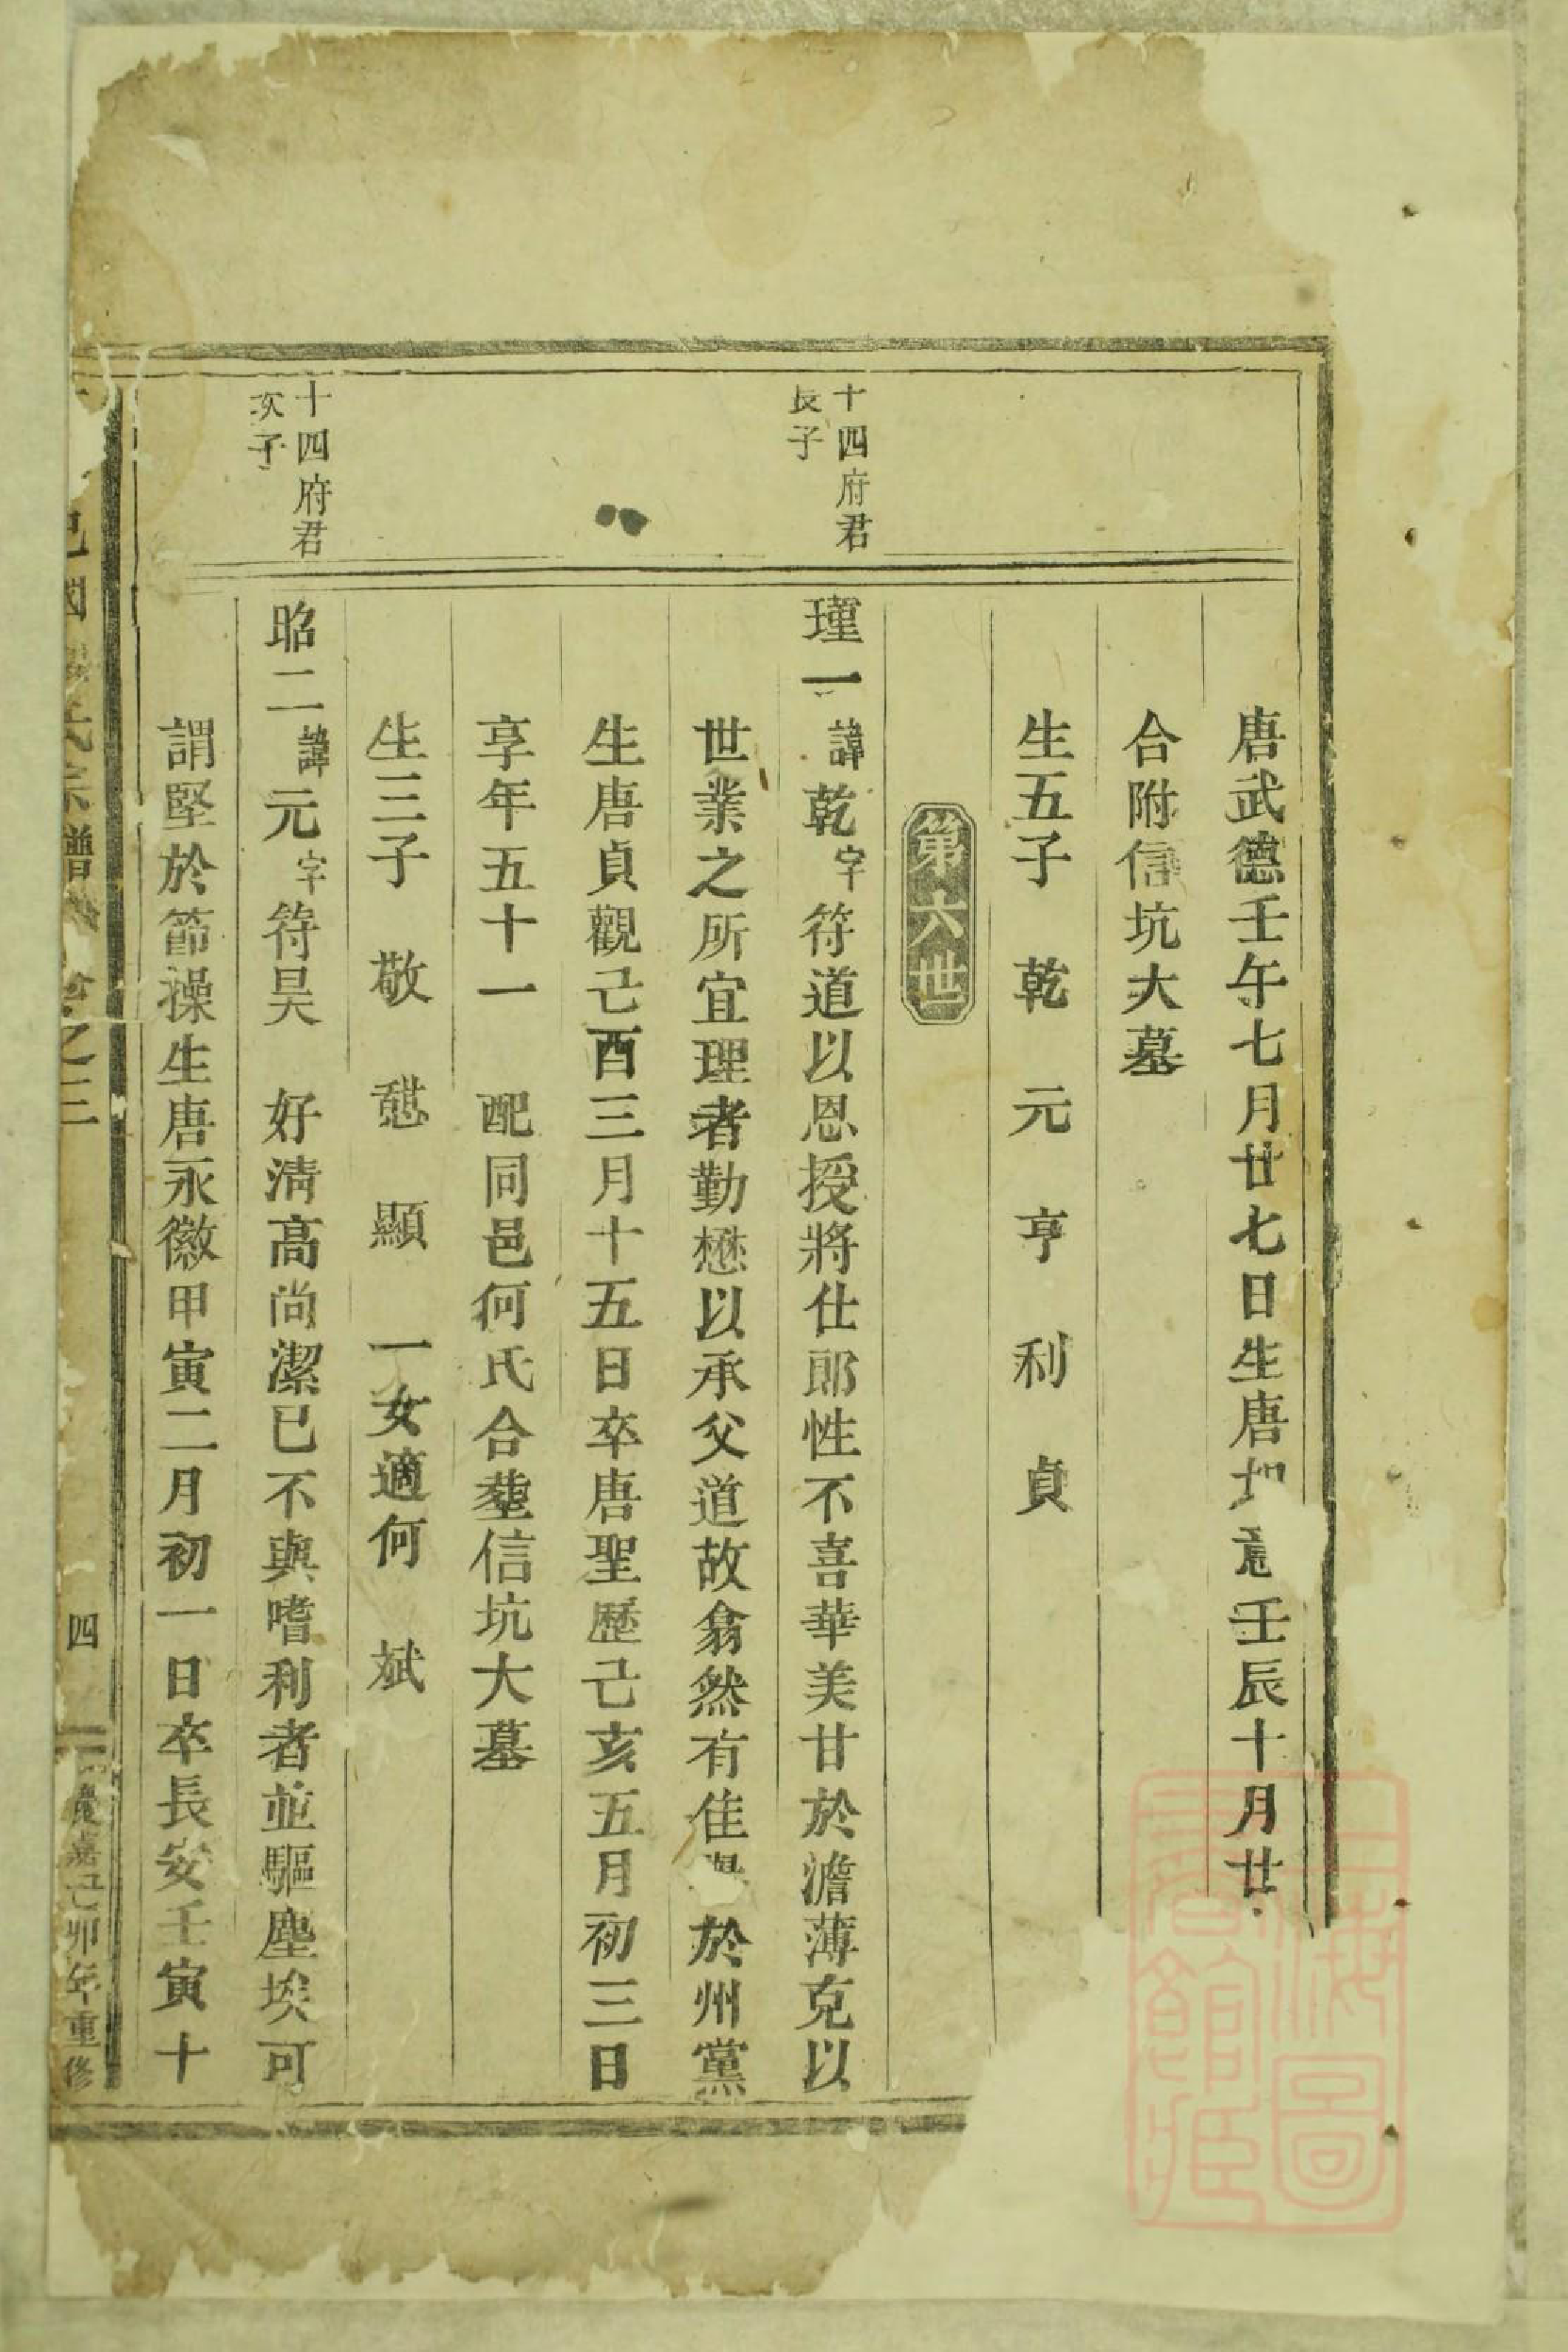 唐武德壬午七月廿七日生唐意壬辰十月廿
合附信坑大墓
生五子 乾 元 亨 利 貞
第六世
十四府君
長子
瑾一諱乾字符道以恩授將仕郎性不喜華美甘於澹薄克以
世業之所宜理者勤懋以承父道故翕然有佳於州黨
生唐貞觀己酉三月十五日卒唐聖歷己亥五月初三日
享年五十一 配同邑何氏合塟信坑大墓
生三子 敬 顯 一女適何 斌
十四府君
次子
昭二諱元字符昊 好清高尚潔已不與嗜利者並驅塵埃可
謂堅於節操生唐永徽甲寅二月初一日卒長安壬寅十
國氏宗譜之三 四 慶嘉己卯年重修
上海圖書館